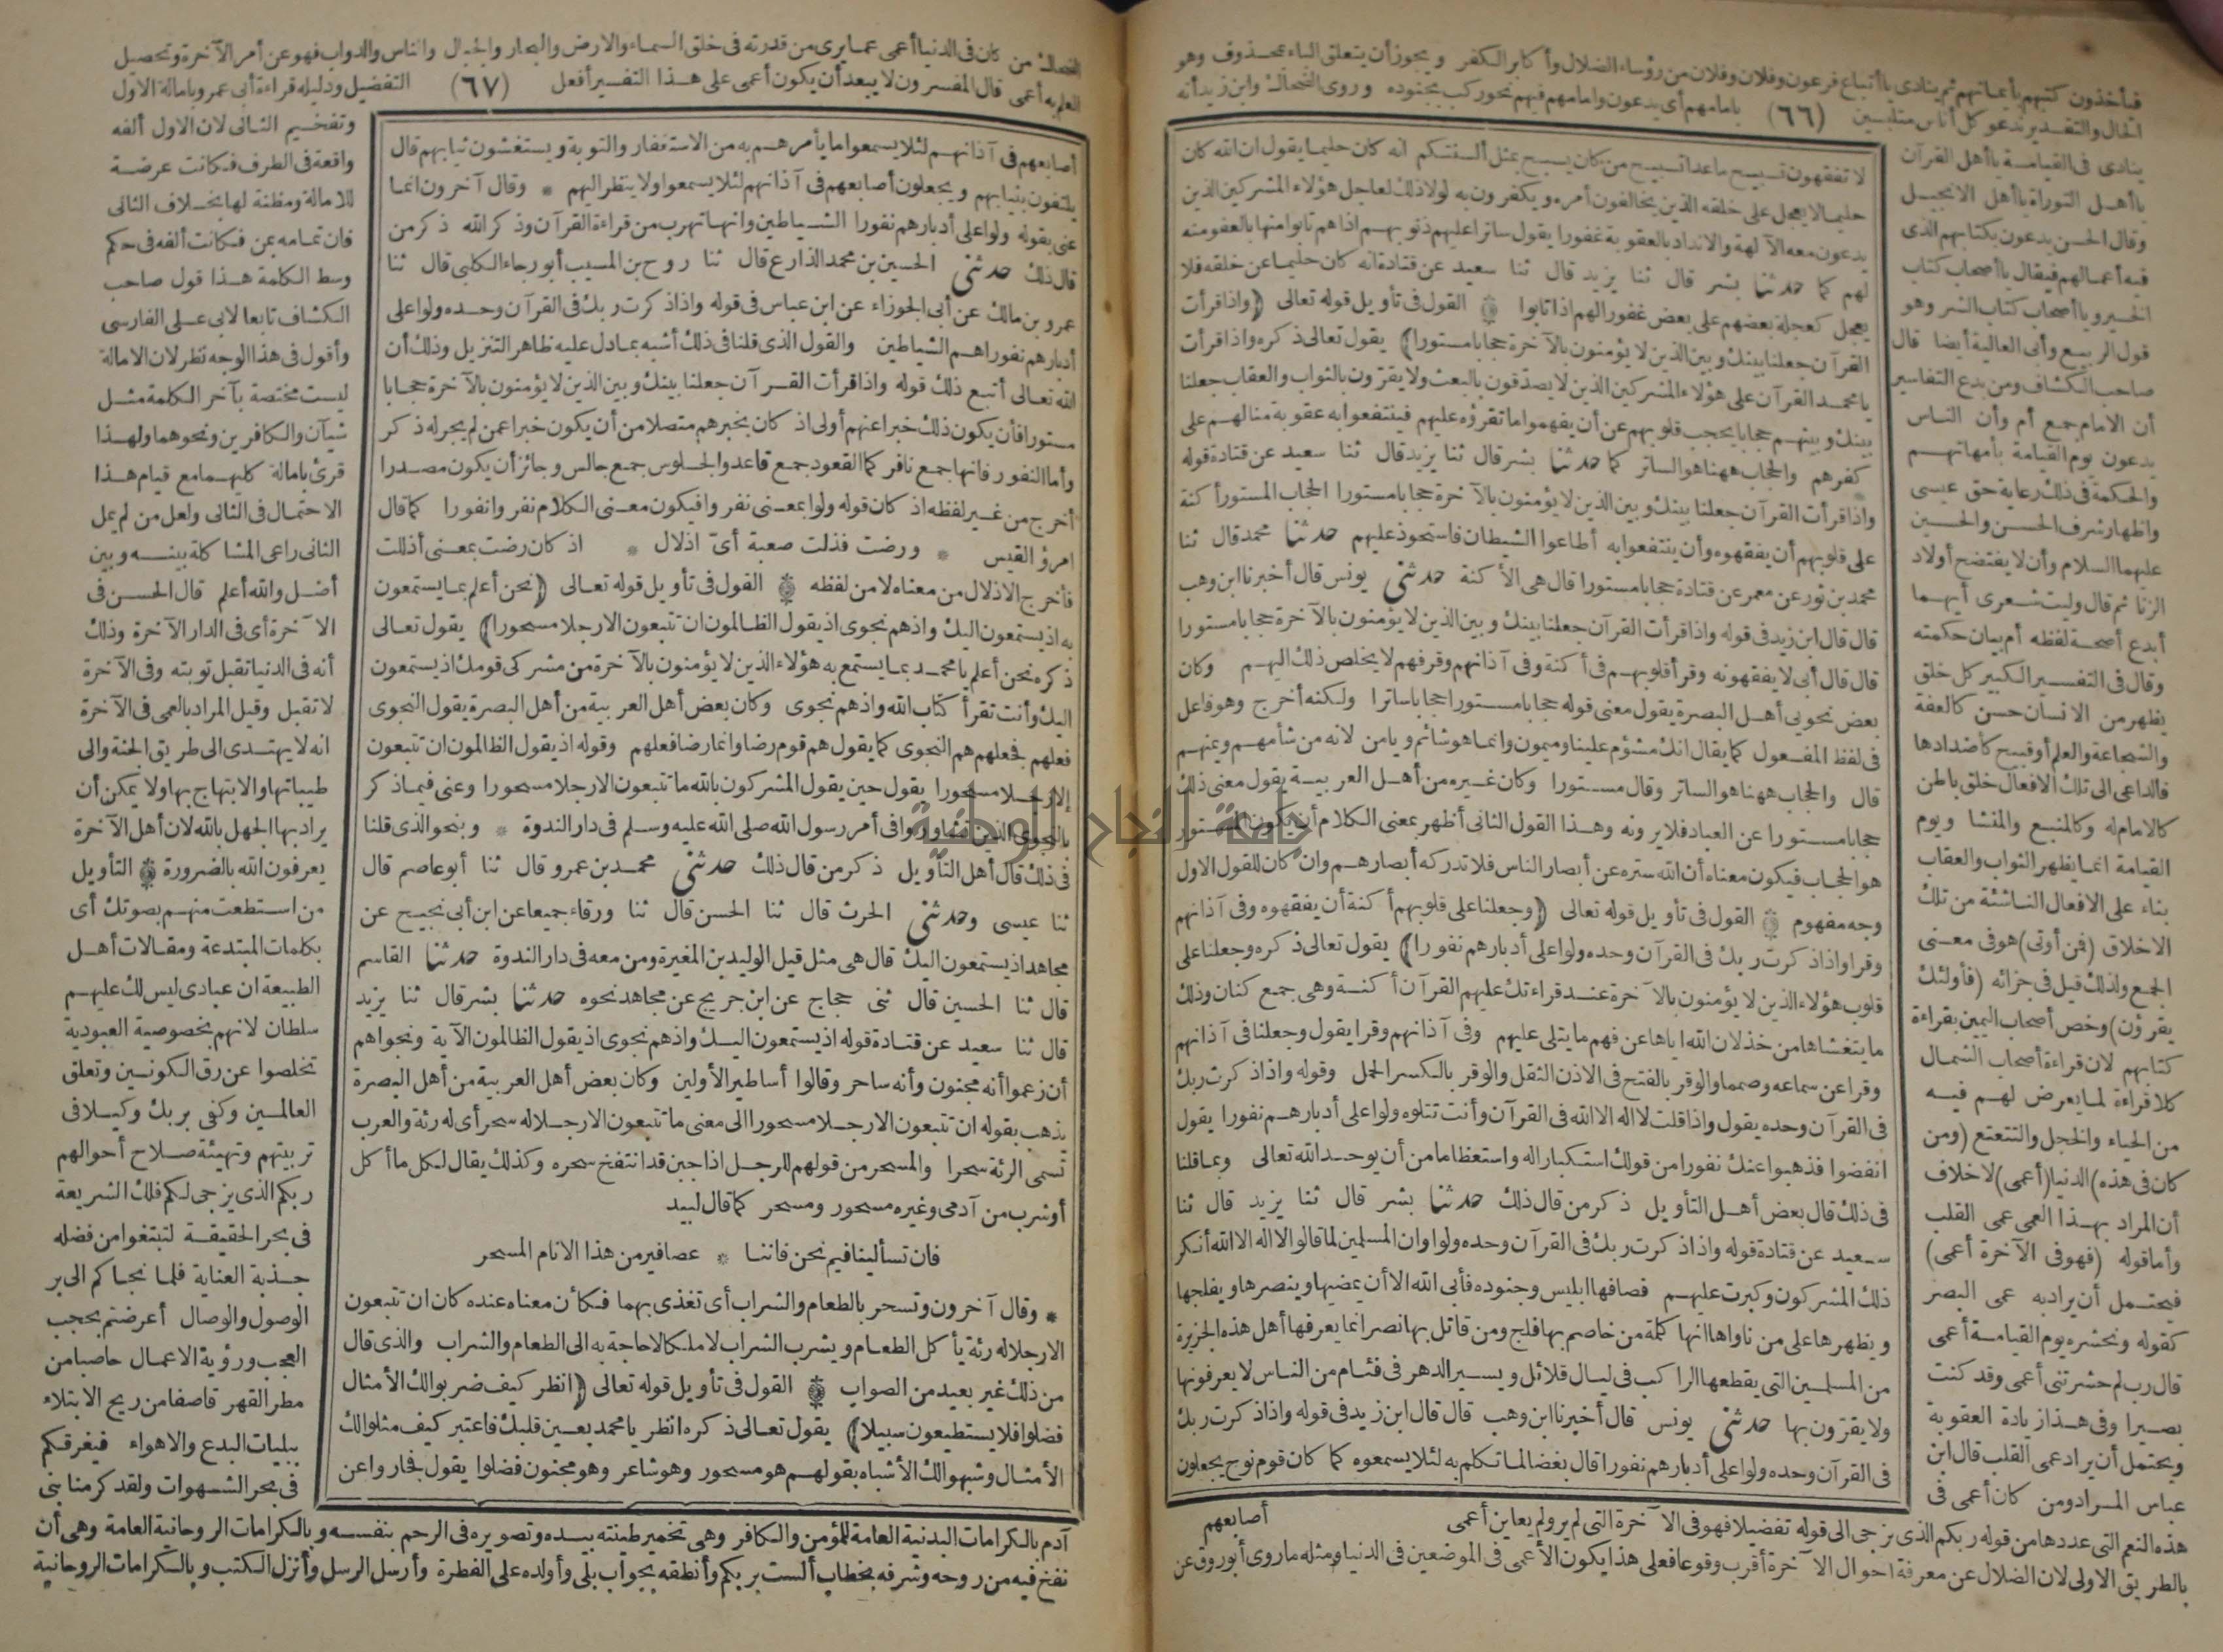 فيأخذون كتبهم بأيمانهم ثم ينادى يا أتباع فرعون وفلان وفلان من رؤساء الضلال وأكابر الكفر ويجوز أن يتعلق الباء بمحذوف وهو
الحال والتقدير ندعو كل أناس متلبسين (٦٦) بامامهم أى يدعون وامامهم فيهم نحو ركب بجنوده وروى الضحاك وابن زيد أنه
ينادى فى القيامة يا أهل القرآن
يا أهل التوراة يا أهل الانجيل
وقال الحسن يدعون بكتابهم الذى
فيه أعمالهم فيقال يا أصحاب كتاب
الخير ويا أصحاب كتاب الشر وهو
قول الربيع وأبى العالية أيضا قال
صاحب الكشاف ومن بدع التفاسير
أن الامام جمع أم وأن الناس
يدعون يوم القيامة بأمهاتهم
والحكمة فى ذلك رعاية حق عيسى
واظهار شرف الحسن والحسين
عليهما السلام وأن لا يفتضح أولاد
الزنا ثم قال وليت شعرى أيهما
أبدع أصحة لفظه أم بيان حكمته
وقال فى التفسير الكبير كل خلق
يظهر من الانسان حسن كالعفة
والشجاعة والعلم أو قبيح كأضدادها
فالداعى الى تلك الافعال خلق باطن
كالامام له وكالمنبع والمنشا ويوم
القيامة انما يظهر الثواب والعقاب
بناء على الافعال الناشئة من تلك
الاخلاق (فمن أوتى) هو فى معنى
الجمع ولذلك قيل فى جزائه (فأولئك
يقرؤن) وخص أصحاب اليمين بقراءة
كتابهم لان قراءة أصحاب الشمال
كلا قراءة لما يعرض لهم فيه
من الحياء والخجل والتتعتع (ومن
كان فى هذه) الدنيا (أعمى) لاخلاف
أن المراد بهذا العمى عمى القلب
وأما قوله (فهو فى الآخرة أعمى)
فيحتمل أن يراد به عمى البصر
كقوله ونحشره يوم القيامة أعمى
قال رب لم حشرتنى أعمى وقد كنت
بصيرا وفى هذا زيادة العقوبة
ويحتمل أن يراد عمى القلب قال ابن
عباس المراد ومن كان أعمى فى
هذه النعم التى عددها من قوله ربكم الذى يزجى الى قوله تفضيلا فهو فى الآخرة التى لم ير ولم يعاين أعمى
بالطريق الاولى لان الضلال عن معرفة احوال الآخرة أقرب وقوعا فعلى هذا يكون الأعمى فى الموضعين فى الدنيا ومثله ما روى أبو روق عن
لا تفقهون تسبيح ما عدا تسبيح من كان يسبح بمثل ألسنتكم انه كان حليما يقول ان الله كان
حليما لا يعجل على خلقه الذين يخالفون أمره ويكفرون به لولا ذلك لعاجل هؤلاء المشركين الذين
يدعون معه الآلهة والانداد بالعقوبة غفورا يقول ساترا عليهم ذنوبهم اذا هم تابوا منها بالعفو منه
لهم كما حدثنا بشر قال ثنا يزيد قال ثنا سعيد عن قتادة انه كان حليما عن خلقه فلا
يعجل كعجلة بعضهم على بعض غفورا لهم اذا تابوا القول فى تأويل قوله تعالى (واذا قرأت
القرآن جعلنا بينك وبين الذين لا يؤمنون بالآخرة حجابا مستورا) يقول تعالى ذكره واذا قرأت
يا محمد القرآن على هؤلاء المشركين الذين لا يصدقون بالبعث ولا يقرون بالثواب والعقاب جعلنا
بينك وبينهم حجابا يحجب قلوبهم عن أن يفهموا ما تقرؤه عليهم فينتفعوا به عقوبة منا لهم على
كفرهم والحجاب ههنا هو الساتر كما حدثنا بشر قال ثنا يزيد قال ثنا سعيد عن قتادة قوله
واذا قرأت القرآن جعلنا بينك وبين الذين لا يؤمنون بالآخرة حجابا مستورا الحجاب المستور أكنة
على قلوبهم أن يفقهوه وأن ينتفعوا به أطاعوا الشيطان فاستحوذ عليهم حدثنا محمد قال ثنا
محمد بن ثور عن معمر عن قتادة حجابا مستورا قال هى الأكنة حدثنى يونس قال أخبرنا ابن وهب
قال قال ابن زيد فى قوله واذا قرأت القرآن جعلنا بينك وبين الذين لا يؤمنون بالآخرة حجابا مستورا
قال قال أبى لا يفقهونه وقرأ قلوبهم فى أكنة وفى آذانهم وقر فهم لا يخلص ذلك اليهم وكان
بعض نحويى أهل البصرة يقول معنى قوله حجابا مستورا حجابا ساترا ولكنه أخرج وهو فاعل
فى لفظ المفعول كما يقال انك مشؤم علينا وميمون وانما هو شائم ويامن لانه من شأمهم ويمنهم
قال والحجاب ههنا هو الساتر وقال مستورا وكان غيره من أهل العربية يقول معنى ذلك
حجابا مستورا عن العباد فلا يرونه وهذا القول الثانى أظهر بمعنى الكلام أن يكون المستور
هو الحجاب فيكون معناه أن الله ستره عن أبصار الناس فلا تدركه أبصارهم وان كان للقول الاول
وجه مفهوم القول فى تأويل قوله تعالى (وجعلنا على قلوبهم أكنة أن يفقهوه وفى آذانهم
وقرا واذا ذكرت ربك فى القرآن وحده ولوا على أدبارهم نفورا) يقول تعالى ذكره وجعلنا على
قلوب هؤلاء الذين لا يؤمنون بالآخرة عند قراءتك عليهم القرآن أكنة وهى جميع كنان وذلك
ما يتغشاها من خذلان الله اياها عن فهم ما يتلى عليهم وفى آذانهم وقرا يقول وجعلنا فى آذانهم
وقرا عن سماعه وصمما والوقر بالفتح فى الاذن الثقل والوقر بالكسر الحمل وقوله واذا ذكرت ربك
فى القرآن وحده يقول واذا قلت لا اله الا الله فى القرآن وأنت تتلوه ولوا على أدبارهم نفورا يقول
انفضوا فذهبوا عنك نفورا من قولك استكبارا له واستعظاما من أن يوحد الله تعالى وبما قلنا
فى ذلك قال بعض أهل التأويل ذكر من قال ذلك حدثنا بشر قال ثنا يزيد قال ثنا
سعيد عن قتادة قوله واذا ذكرت ربك فى القرآن وحده ولوا وان المسلمين لما قالوا لا اله الا الله أنكر
ذلك المشركون وكبرت عليهم فصافها ابليس وجنوده فأبى الله الا أن يمضيها وينصرها ويفلجها
ويظهرها على من ناواها انها كلمة من خاصم بها فلج ومن قاتل بها نصر انما يعرفها أهل هذه الجزيرة
من المسلمين التى يقطعها الراكب فى ليال قلائل ويسير الدهر فى فئام من الناس لا يعرفونها
ولا يقرون بها حدثنى يونس قال أخبرنا ابن وهب قال قال ابن زيد فى قوله واذا ذكرت ربك
فى القرآن وحده ولوا على أدبارهم نفورا قال بغضا لما تكلم به لئلا يسمعوه كما كان قوم نوح يجعلون
أصابعهم
الضحاك من كان فى الدنيا أعمى عما يرى من قدرته فى خلق السماء والارض والبحار والجبال والناس والدواب فهو عن أمر الآخرة وتحصيل
العلم به أعمى قال المفسرون لا يبعد أن يكون أعمى على هذا التفسير أفعل (٦٧) التفضيل ودليله قراءة أبى عمرو بامالة الاول
أصابعهم فى آذانهم لئلا يسمعوا ما يأمرهم به من الاستغفار والتوبة ويستغشون ثيابهم قال
يلتفون بثيابهم ويجعلون أصابعهم فى آذانهم لئلا يسمعوا ولا ينظر اليهم * وقال آخرون انما
عنى بقوله ولوا على أدبارهم نفورا الشياطين وانها تهرب من قراءة القرآن وذكر الله ذكر من
قال ذلك حدثنى الحسين بن محمد الذارع قال ثنا روح بن المسيب أبو رجاء الكلبى قال ثنا
عمرو بن مالك عن أبى الجوزاء عن ابن عباس فى قوله واذا ذكرت ربك فى القرآن وحده ولوا على
أدبارهم نفورا هم الشياطين والقول الذى قلنا فى ذلك أشبه بما دل عليه ظاهر التنزيل وذلك أن
الله تعالى أتبع ذلك قوله واذا قرأت القرآن جعلنا بينك وبين الذين لا يؤمنون بالآخرة حجابا
مستورا فأن يكون ذلك خبرا عنهم أولى اذ كان بخبرهم متصلا من أن يكون خبرا عمن لم يجر له ذكر
وأما النفور فانها جمع نافر كما القعود جمع قاعد والجلوس جمع جالس وجائز أن يكون مصدرا
أخرج من غير لفظه اذ كان قوله ولوا بمعنى نفروا فيكون معنى الكلام نفروا نفورا كما قال
امرؤ القيس * ورضت فذلت صعبة أى اذلال * اذ كان رضت بمعنى أذللت
فأخرج الاذلال من معناه لا من لفظه القول فى تأويل قوله تعالى (نحن أعلم بما يستمعون
به اذ يستمعون اليك واذ هم نجوى اذ يقول الظالمون ان تتبعون الا رجلا مسحورا) يقول تعالى
ذكره نحن أعلم يا محمد بما يستمع به هؤلاء الذين لا يؤمنون بالآخرة من مشركى قومك اذ يستمعون
اليك وأنت تقرأ كتاب الله واذ هم نجوى وكان بعض أهل العربية من أهل البصرة يقول النجوى
فعلهم فجعلهم هم النجوى كما يقول هم قوم رضا وانما رضا فعلهم وقوله اذ يقول الظالمون ان تتبعون
الا رجلا مسحورا يقول حين يقول المشركون بالله ما تتبعون الا رجلا مسحورا وعنى فيما ذكر
بالنجوى الذين تشاوروا فى أمر رسول الله صلى الله عليه وسلم فى دار الندوة * وبنحو الذى قلنا
فى ذلك قال أهل التأويل ذكر من قال ذلك حدثنى محمد بن عمرو قال ثنا أبو عاصم قال
ثنا عيسى وحدثنى الحرث قال ثنا الحسن قال ثنا ورقاء جميعا عن ابن أبى نجيح عن
مجاهد اذ يستمعون اليك قال هى مثل قيل الوليد بن المغيرة ومن معه فى دار الندوة حدثنا القاسم
قال ثنا الحسين قال ثنى حجاج عن ابن جريج عن مجاهد نحوه حدثنا بشر قال ثنا يزيد
قال ثنا سعيد عن قتادة قوله اذ يستمعون اليك واذ هم نجوى اذ يقول الظالمون الآية ونجواهم
أن زعموا أنه مجنون وأنه ساحر وقالوا أساطير الأولين وكان بعض أهل العربية من أهل البصرة
يذهب بقوله ان تتبعون الا رجلا مسحورا الى معنى ما تتبعون الا رجلا له سحر أى له رئة والعرب
تسمى الرئة سحرا والمسحر من قولهم للرجل اذا جبن قد انتفخ سحره وكذلك يقال لكل ما أكل
أو شرب من آدمى وغيره مسحور ومسحر كما قال لبيد
فان تسألينا فيم نحن فاننا * عصافير من هذا الانام المسحر
* وقال آخرون وتسحر بالطعام والشراب أى تغذى بهما فكأن معناه عنده كان ان تتبعون
الا رجلا له رئة يأكل الطعام ويشرب الشراب لا ملكا لا حاجة به الى الطعام والشراب والذى قال
من ذلك غير بعيد من الصواب القول فى تأويل قوله تعالى (انظر كيف ضربوا لك الأمثال
فضلوا فلا يستطيعون سبيلا) يقول تعالى ذكره انظر يا محمد بعين قلبك فاعتبر كيف مثلوا لك
الأمثال وشبهوا لك الأشباه بقولهم هو مسحور وهو شاعر وهو مجنون فضلوا يقول فجاروا عن
وتفخيم الثانى لان الاول ألفه
واقعة فى الطرف فكانت عرضة
للامالة ومظنة لها بخلاف الثانى
فان تمامه بمن فكانت ألفه فى حكم
وسط الكلمة هذا قول صاحب
الكشاف تابعا لابى على الفارسى
وأقول فى هذا الوجه نظر لان الامالة
ليست مختصة بآخر الكلمة مثل
شيآن والكافرين ونحوهما ولهذا
قرئ بامالة كليهما مع قيام هذا
الاحتمال فى الثانى ولعل من لم يمل
الثانى راعى المشاكلة بينه وبين
أضل والله أعلم قال الحسن فى
الآخرة أى فى الدار الآخرة وذلك
أنه فى الدنيا تقبل توبته وفى الآخرة
لا تقبل وقيل المراد بالعمى فى الآخرة
انه لا يهتدى الى طريق الجنة والى
طيباتها والابتهاج بها ولا يمكن أن
يراد بها الجهل بالله لان أهل الآخرة
يعرفون الله بالضرورة التأويل
من استطعت منهم بصوتك أى
بكلمات المبتدعة ومقالات أهل
الطبيعة ان عبادى ليس لك عليهم
سلطان لانهم بخصوصية العبودية
تخلصوا عن رق الكونين وتعلق
العالمين وكفى بربك وكيلا فى
تربيتهم وتهيئة صلاح أحوالهم
ربكم الذى يزجى لكم فلك الشريعة
فى بحر الحقيقة لتبتغوا من فضله
جذبة العناية فلما نجاكم الى بر
الوصول والوصال أعرضتم بحجب
العجب ورؤية الاعمال حاصبا من
مطر القهر قاصفا من ريح الابتلاء
ببليات البدع والاهواء فيغرقكم
فى بحر الشهوات ولقد كرمنا بنى
آدم بالكرامات البدنية العامة للمؤمن والكافر وهى تخمير طينته بيده وتصويره فى الرحم بنفسه وبالكرامات الروحانية العامة وهى أن
نفخ فيه من روحه وشرفه بخطاب ألست بربكم وأنطقه بجواب بلى وأولده على الفطرة وأرسل الرسل وأنزل الكتب وبالكرامات الروحانية
جامعة النجاح الوطنية